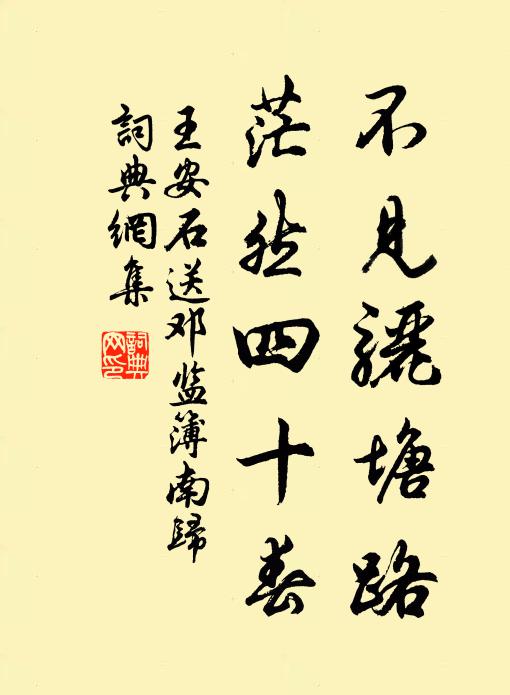 不見驪塘路
茫然四十春
王安石送邓监簿南歸
詞典網集
詞典
网印